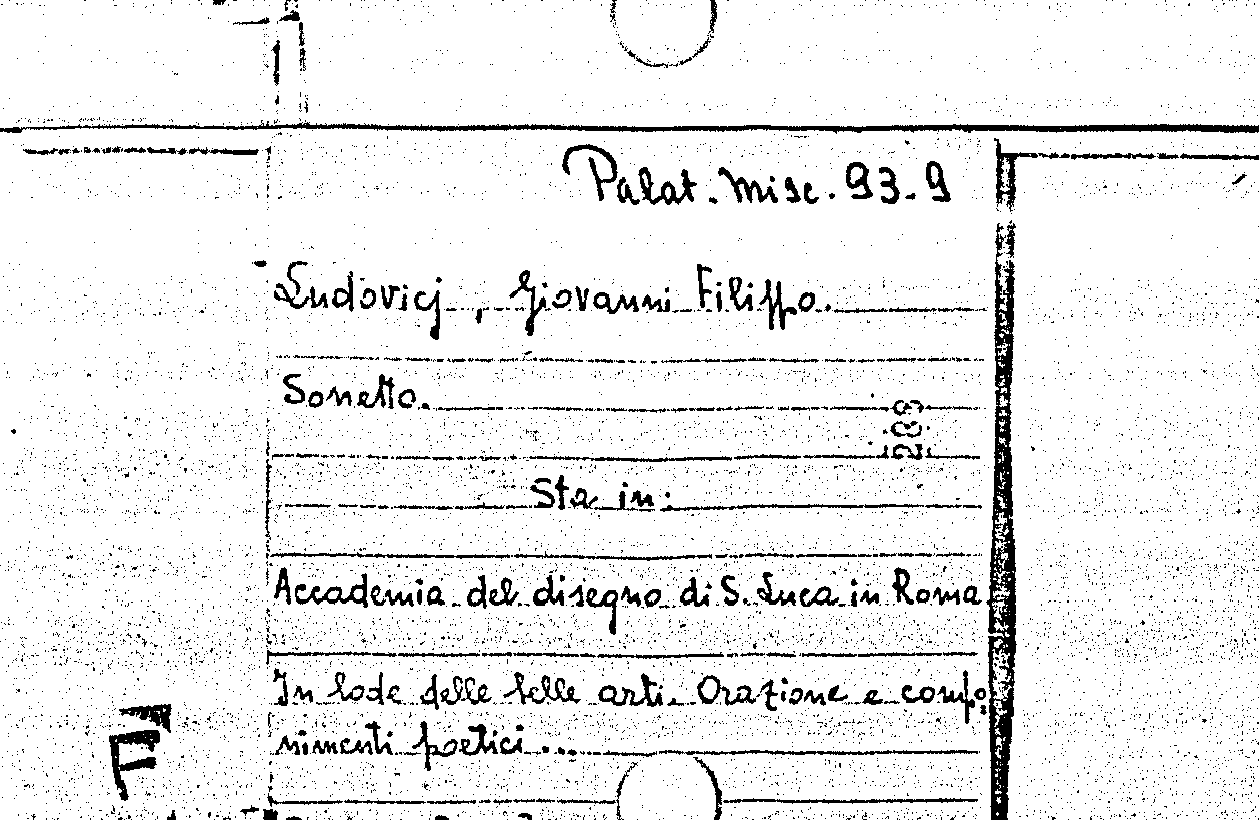 Palat. Misc. 93.9
Ludovicj, Giovanni Filippo.
Sonetto.
289
Sta in:
Accademia del disegno di S. Luca in Roma.
In lode delle belle arti. Orazione e compo:
nimenti poetici ...
F